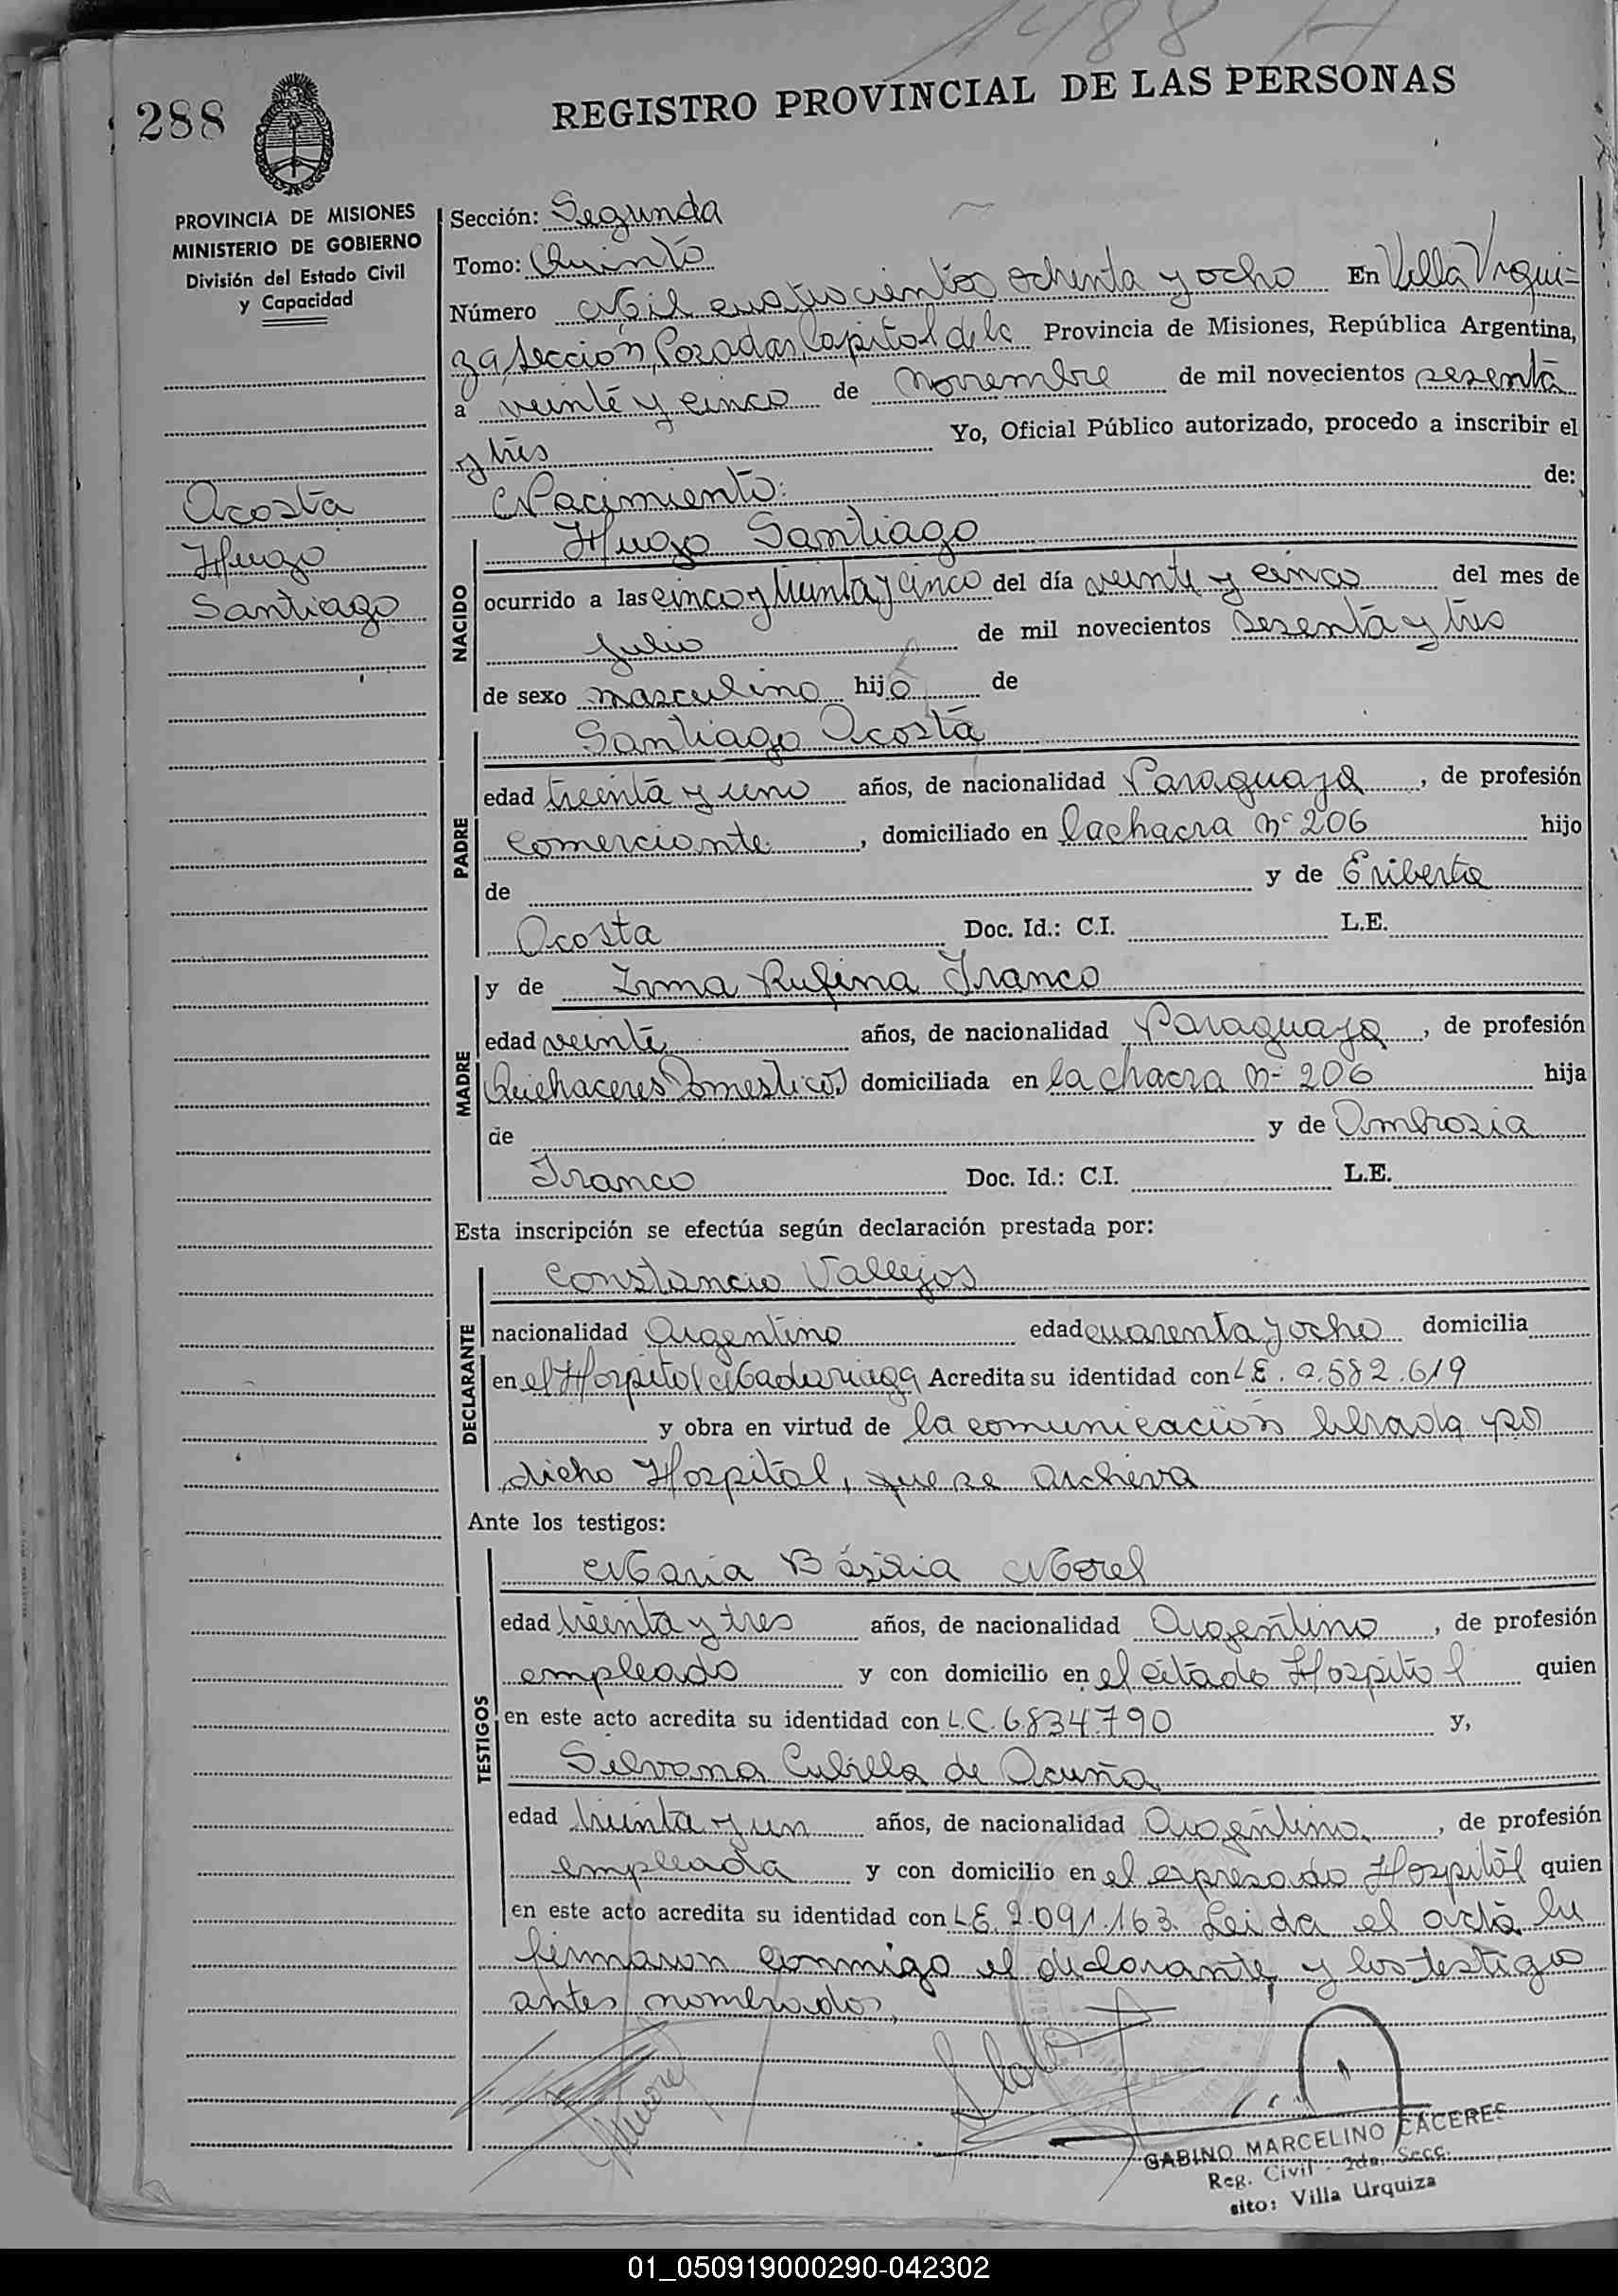 1488 H
288
REGISTRO PROVINCIAL DE LAS PERSONAS
PROVINCIA DE MISIONES
MINISTERIO DE GOBIERNO
División del Estado Civil
y Capacidad
Acosta
Hugo
Santiago
Sección: Segunda
Tomo: Quinto
Número Mil cuatrocientos ochenta y ocho En Villa Urqui=
za, sección, Posadas, Capital de la Provincia de Misiones, República Argentina,
a veinte y cinco de noviembre de mil novecientos sesenta
y tres Yo, Oficial Público autorizado, procedo a inscribir el
Nacimiento: de:
NACIDO
Hugo Santiago
ocurrido a las cinco y treinta y cinco del día veinte y cinco del mes de
Julio de mil novecientos sesenta y tres
de sexo masculino hijo de
PADRE
Santiago Acosta
edad treinta y uno años, de nacionalidad Paraguaya, de profesión
comerciante, domiciliado en la chacra Nº 206 hijo
de y de Eriberta
Acosta Doc. Id.: C.I. L.E.
MADRE
y de Irma Rufina Franco
edad veinte años, de nacionalidad Paraguaya, de profesión
Quehaceres Domesticos domiciliada en la chacra Nº 206 hija
de y de Ambrosia
Franco Doc. Id.: C.I. L.E.
Esta inscripción se efectúa según declaración prestada por:
DECLARANTE
Constancio Vallejos
nacionalidad Argentino edad cuarenta y ocho domicilia
en el Hospital Madariaga Acredita su identidad con L.E. 2.582.619
y obra en virtud de la comunicación librada por
dicho Hospital, que se archiva
Ante los testigos:
TESTIGOS
Maria Básilia Morel
edad treinta y tres años, de nacionalidad Argentino, de profesión
empleado y con domicilio en el citado Hospital quien
en este acto acredita su identidad con L.C. 6834.790 y,
Silvana Cubilla de Acuña
edad treinta y un años, de nacionalidad Argentina, de profesión
empleada y con domicilio en el expresado Hospital quien
en este acto acredita su identidad con L.E. 2.091.163. Leida el acta la
firmaron conmigo el declarante, y los testigos
antes nombrados,
GABINO MARCELINO CACERES
Reg. Civil - 2da. Secc.
sito: Villa Urquiza
01_050919000290-042302